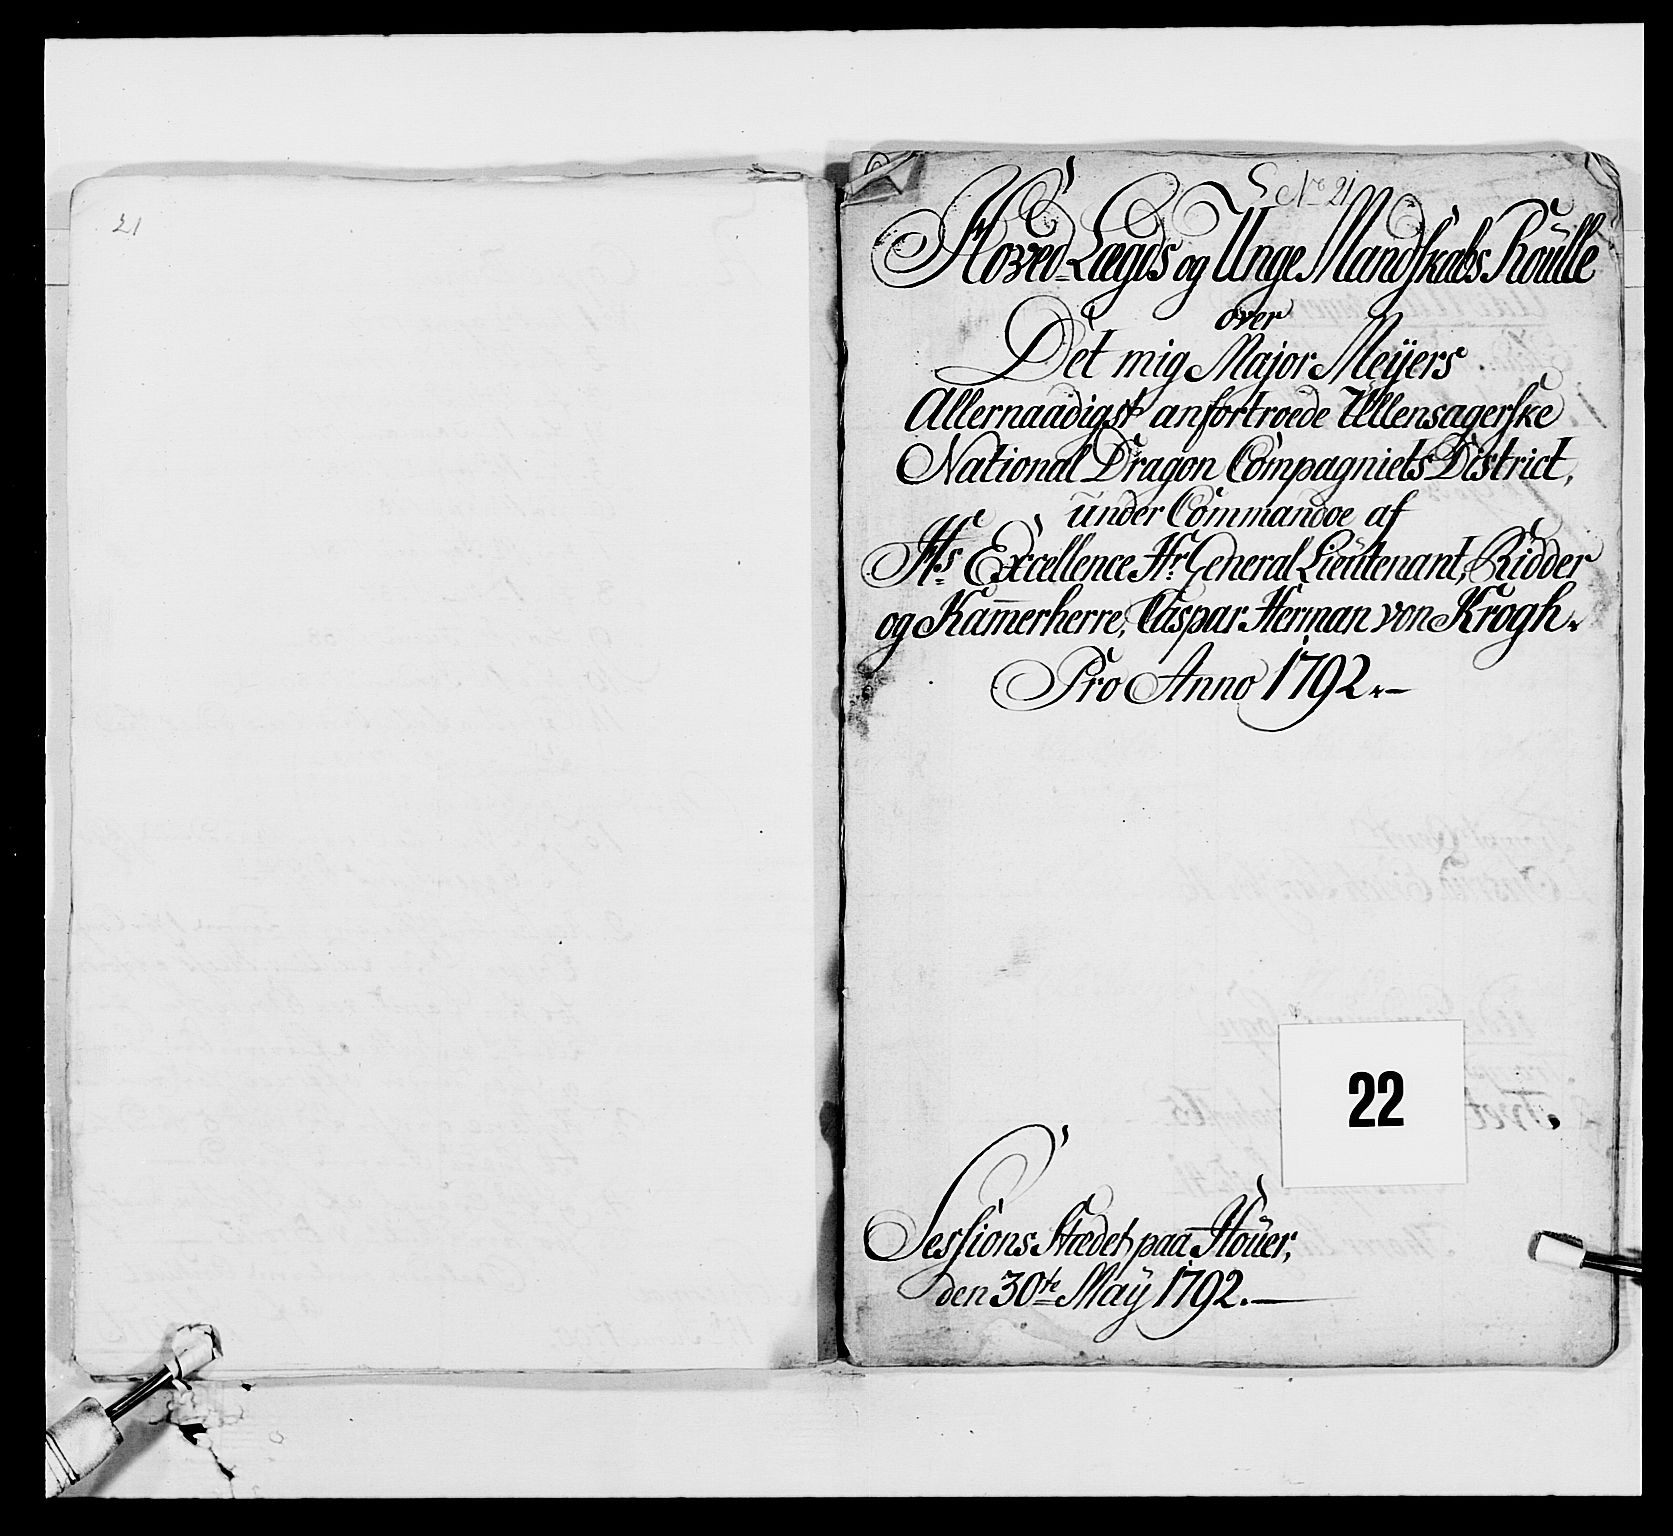 21
No 21
Hoved-Lægds og Unge Mandskabs Roulle
over
Det mig Major Meÿers
Allernaadigst anfortroede Ullensagerske
National Dragon Compagniets District,
under Commandoe af
Hs Excellence Hr General Lieutenant, Ridder
og Kam̅erherre, Caspar Herman von Krogh.
Pro Anno 1792.
22
Sessions Stædet paa Houer,
den 30te Maÿ 1792.